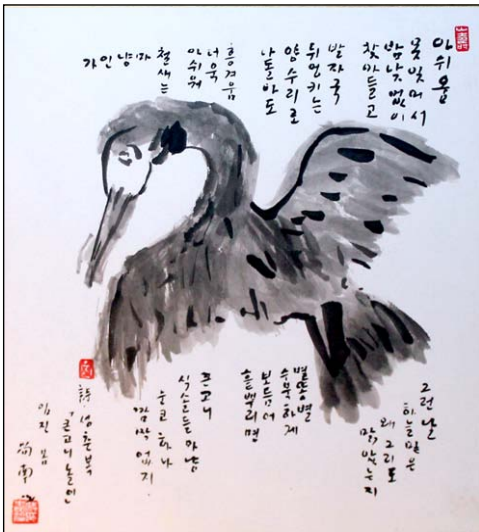 아쉬움
못 잊어서
밤낮없이
찾아들고
발자국
뒤엉키는
양수리로
나돌아도
흥겨움
더욱
아쉬워
철새는
그런 날
하늘빛은
왜 그리도
맑았는지
별똥별
수북하게
보듬어
흩뿌리며
큰고니
식솔들 마냥
하나
詩 성춘복
"큰고니
임진 봄